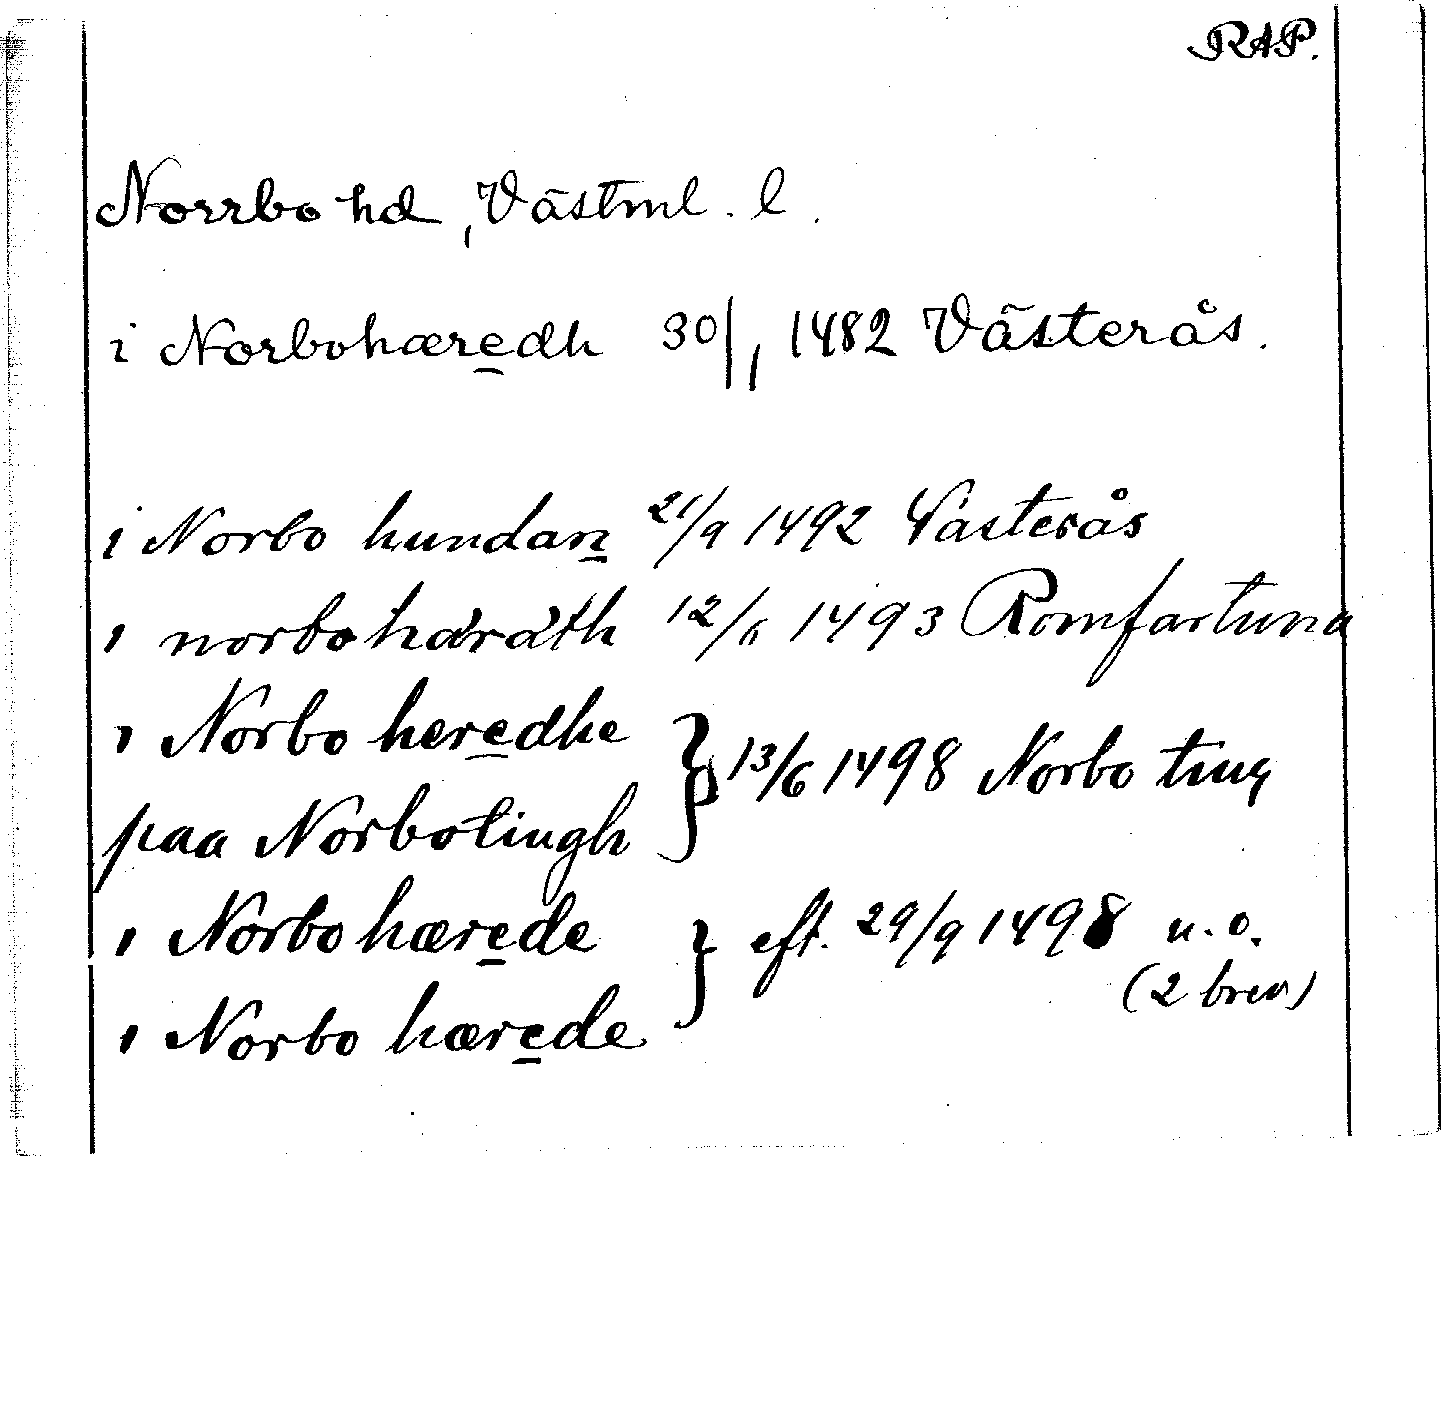 RAP.
Norrbo hd, Västml. l.
i Norbohæredh 30/1 1482 Västerås.
i Norbo hundan 21/9 1492 Västerås
i norboháráth 12/6 1493 Romfartuna
i Norbo heredhe } 13/6 1498 Norbo ting
paa Norbotingh
i Norbo hærede } eft. 29/9 1498 u.o.
(2 brev)
i Norbo hærede